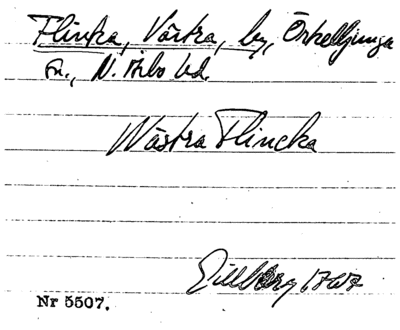 Flinka, Västra, by, Örkelljunga
sn., N. Åsbo hd.
Wästra Flincka
Gillberg 1767
Nr 5507.